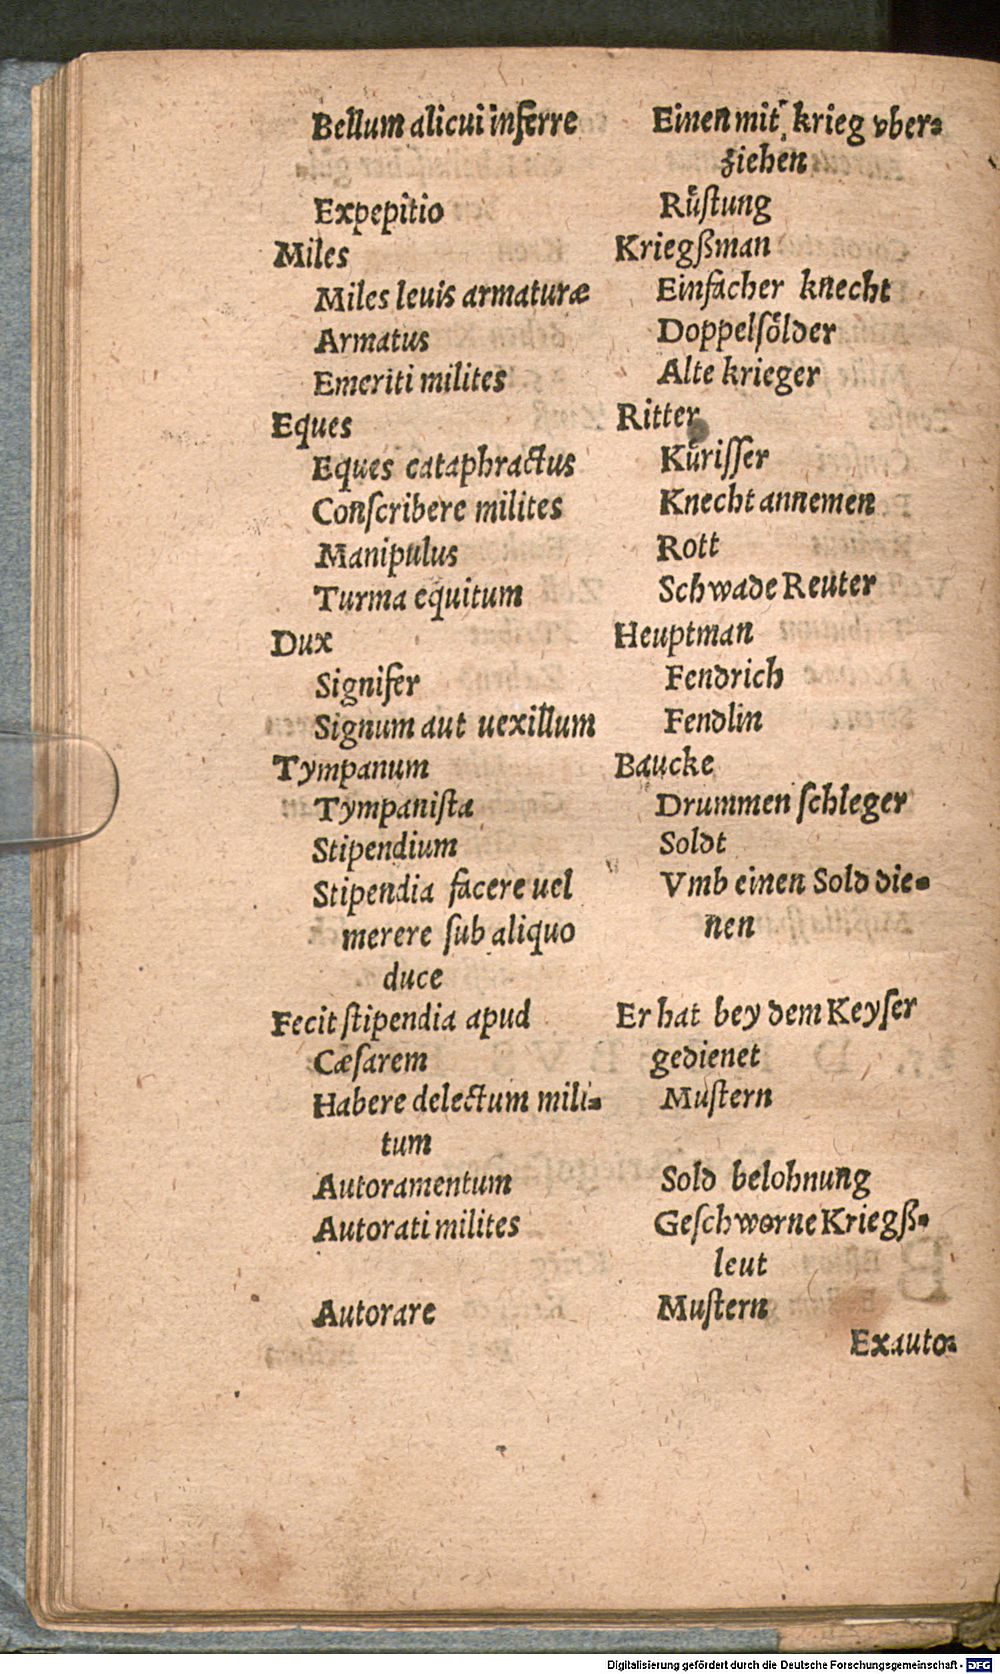 Bellum alicui inferre Einen mit krieg vber⸗
ziehen
Expepitio Rüſtung
Miles Kriegßman
Miles leuis armaturæ Einfacher knecht
Armatus Doppelſölder
Emeriti milites Alte krieger
Eques Ritter
Eques cataphractus Küriſſer
Conſcribere milites Knecht annemen
Manipulus Rott
Turma equitum Schwade Reuter
Dux Heuptman
Signifer Fendrich
Signum aut uexillum Fendlin
Tympanum Baucke
Tympaniſta Drummen ſchleger
Stipendium Soldt
Stipendia facere uel Vmb einen Sold die⸗
merere ſub aliquo nen
duce
Fecit ſtipendia apud Er hat bey dem Keyſer
Cæſarem gedienet
Habere delectum mili⸗ Muſtern
tum
Autoramentum Sold belohnung
Autorati milites Geſchworne Kriegß⸗
leut
Autorare Muſtern
Exauto⸗
Digitalisierung gefördert durch die Deutsche Forschungsgemeinschaft - DFG